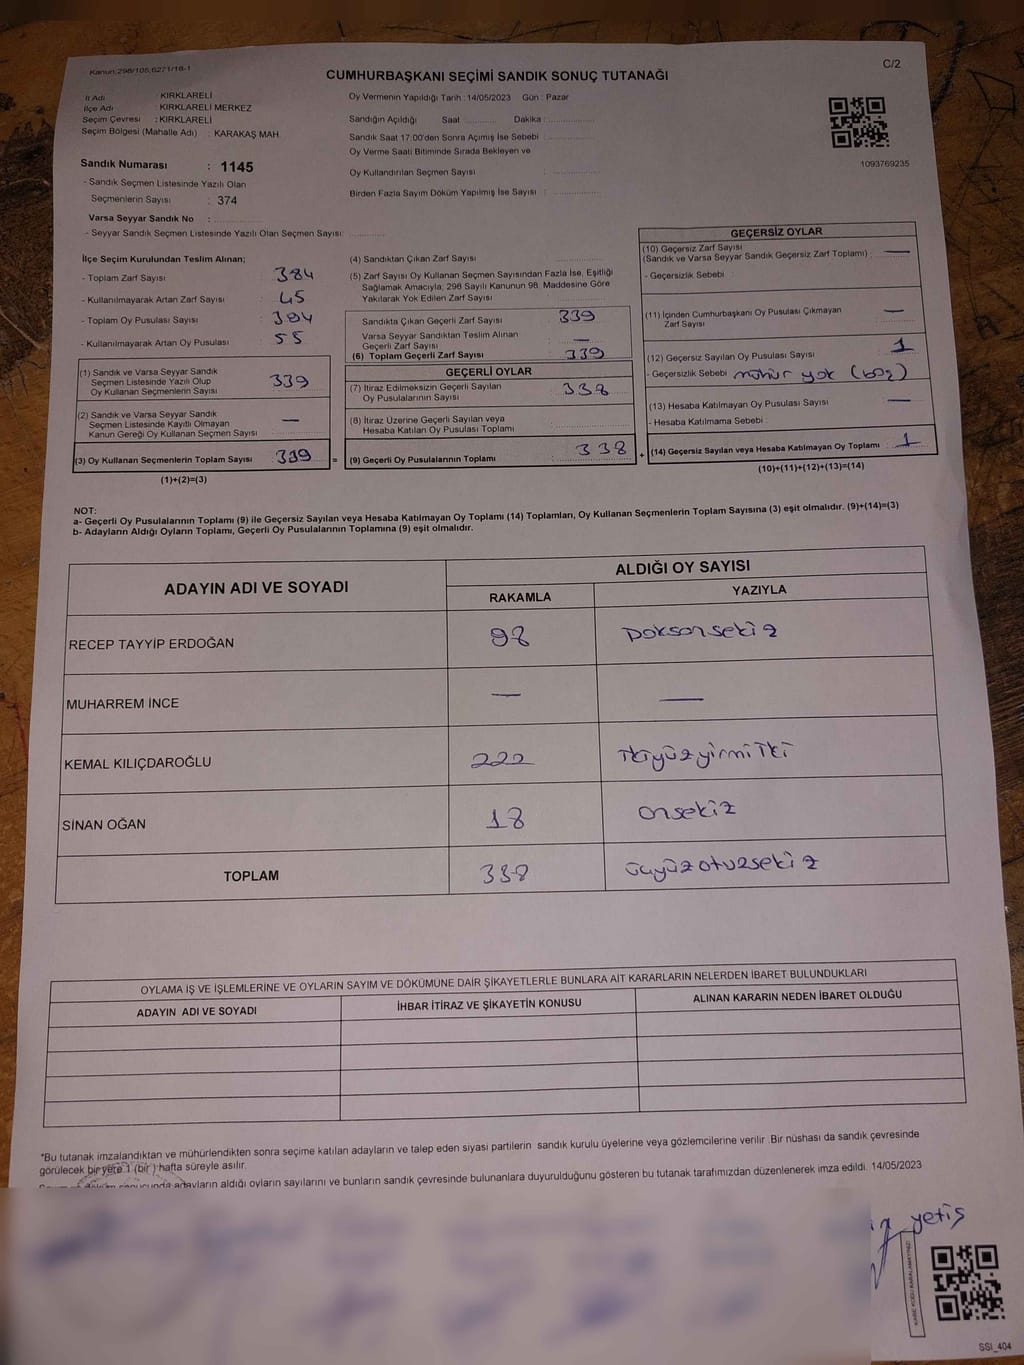 Kanun;298/105,6271/18-1
C/2
CUMHURBAŞKANI SEÇİMİ SANDIK SONUÇ TUTANAĞI
İl Adı : KIRKLARELİ
İlçe Adı : KIRKLARELİ MERKEZ
Seçim Çevresi : KIRKLARELİ
Seçim Bölgesi (Mahalle Adı) : KARAKAŞ MAH.
Oy Vermenin Yapıldığı Tarih : 14/05/2023 Gün : Pazar
Sandığın Açıldığı Saat Dakika
Sandık Saat 17:00'den Sonra Açımış İse Sebebi
Oy Verme Saati Bitiminde Sırada Bekleyen ve
Oy Kullandırılan Seçmen Sayısı
Birden Fazla Sayım Döküm Yapılmış İse Sayısı
1093769235
Sandık Numarası : 1145
- Sandık Seçmen Listesinde Yazılı Olan
Seçmenlerin Sayısı : 374
Varsa Seyyar Sandık No :
- Seyyar Sandık Seçmen Listesinde Yazılı Olan Seçmen Sayısı:
İlçe Seçim Kurulundan Teslim Alınan;
- Toplam Zarf Sayısı : 384
- Kullanılmayarak Artan Zarf Sayısı : 45
- Toplam Oy Pusulası Sayısı : 394
- Kullanılmayarak Artan Oy Pusulası : 55
(1) Sandık ve Varsa Seyyar Sandık
Seçmen Listesinde Yazılı Olup
Oy Kullanan Seçmenlerin Sayısı : 339
(2) Sandık ve Varsa Seyyar Sandık
Seçmen Listesinde Kayıtlı Olmayan
Kanun Gereği Oy Kullanan Seçmen Sayısı : —
(3) Oy Kullanan Seçmenlerin Toplam Sayısı : 339
(1)+(2)=(3)
(4) Sandıktan Çıkan Zarf Sayısı
(5) Zarf Sayısı Oy Kullanan Seçmen Sayısından Fazla İse, Eşitliği
Sağlamak Amacıyla; 298 Sayılı Kanunun 98. Maddesine Göre
Yakılarak Yok Edilen Zarf Sayısı
Sandıkta Çıkan Geçerli Zarf Sayısı : 339
Varsa Seyyar Sandıktan Teslim Alınan
Geçerli Zarf Sayısı —
(6) Toplam Geçerli Zarf Sayısı 339
GEÇERLİ OYLAR
(7) İtiraz Edilmeksizin Geçerli Sayılan
Oy Pusulalarının Sayısı : 338
(8) İtiraz Üzerine Geçerli Sayılan veya
Hesaba Katılan Oy Pusulası Toplamı
= (9) Geçerli Oy Pusulalarının Toplamı : 338 +
GEÇERSİZ OYLAR
(10) Geçersiz Zarf Sayısı
(Sandık ve Varsa Seyyar Sandık Geçersiz Zarf Toplamı) : —
- Geçersizlik Sebebi :
(11) İçinden Cumhurbaşkanı Oy Pusulası Çıkmayan
Zarf Sayısı —
(12) Geçersiz Sayılan Oy Pusulası Sayısı : 1
- Geçersizlik Sebebi mühür yok (boş)
(13) Hesaba Katılmayan Oy Pusulası Sayısı : —
- Hesaba Katılmama Sebebi :
(14) Geçersiz Sayılan veya Hesaba Katılmayan Oy Toplamı : 1
(10)+(11)+(12)+(13)=(14)
NOT:
a- Geçerli Oy Pusulalarının Toplamı (9) ile Geçersiz Sayılan veya Hesaba Katılmayan Oy Toplamı (14) Toplamları, Oy Kullanan Seçmenlerin Toplam Sayısına (3) eşit olmalıdır. (9)+(14)=(3)
b- Adayların Aldığı Oyların Toplamı, Geçerli Oy Pusulalarının Toplamına (9) eşit olmalıdır.
ADAYIN ADI VE SOYADI ALDIĞI OY SAYISI
RAKAMLA YAZIYLA
RECEP TAYYİP ERDOĞAN 98 Doksansekiz
MUHARREM İNCE — —
KEMAL KILIÇDAROĞLU 222 İkiyüzyirmiİki
SİNAN OĞAN 18 Onsekiz
TOPLAM 338 Üçyüzotuzsekiz
OYLAMA İŞ VE İŞLEMLERİNE VE OYLARIN SAYIM VE DÖKÜMÜNE DAİR ŞİKAYETLERLE BUNLARA AİT KARARLARIN NELERDEN İBARET BULUNDUKLARI
ADAYIN ADI VE SOYADI İHBAR İTİRAZ VE ŞİKAYETİN KONUSU ALINAN KARARIN NEDEN İBARET OLDUĞU
*Bu tutanak imzalandıktan ve mühürlendikten sonra seçime katılan adayların ve talep eden siyasi partilerin sandık kurulu üyelerine veya gözlemcilerine verilir .Bir nüshası da sandık çevresinde
görülecek bir yere 1 (bir ) hafta süreyle asılır.
sonucunda adayların aldığı oyların sayılarını ve bunların sandık çevresinde bulunanlara duyurulduğunu gösteren bu tutanak tarafımızdan düzenlenerek imza edildi. 14/05/2023
yetiş
SSI_404